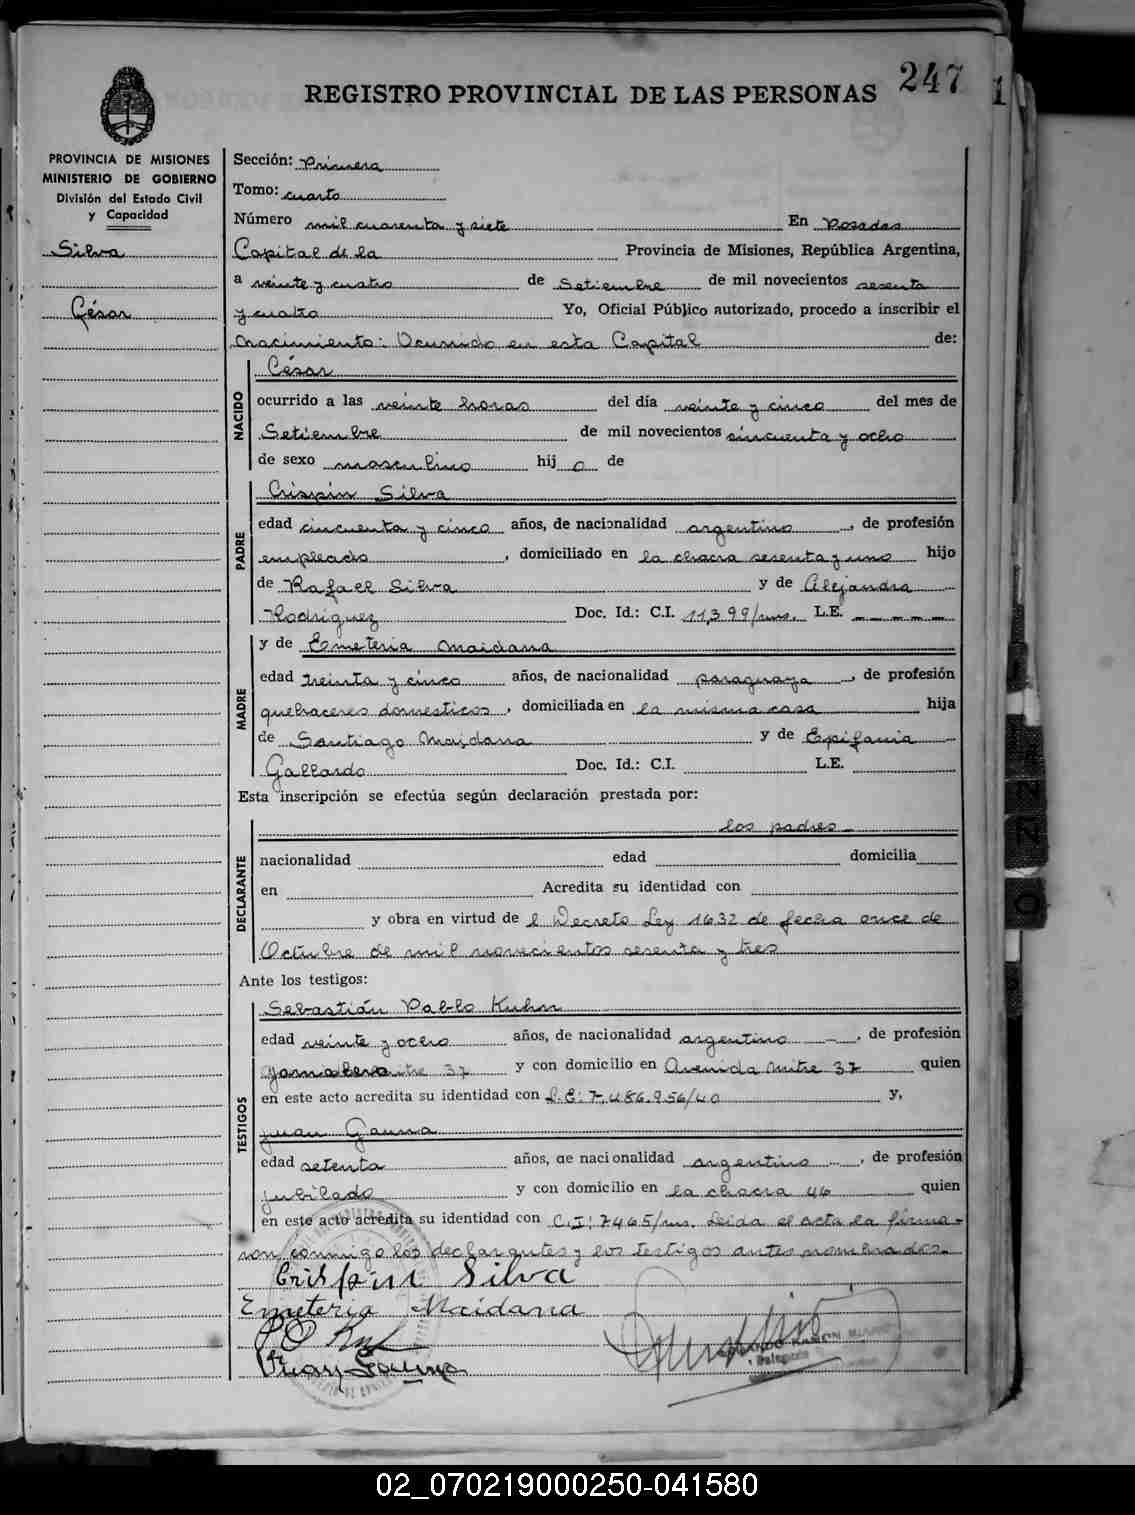 247
1
REGISTRO PROVINCIAL DE LAS PERSONAS
PROVINCIA DE MISIONES
MINISTERIO DE GOBIERNO
División del Estado Civil
y Capacidad
Silva
César
Sección: Primera
Tomo: cuarto
Número mil cuarenta y siete En Posadas
Capital de la Provincia de Misiones, República Argentina,
a veinte y cuatro de Setiembre de mil novecientos sesenta
y cuatro Yo, Oficial Público autorizado, procedo a inscribir el
nacimiento: Ocurrido en esta Capital de:
NACIDO
César
ocurrido a las veinte horas del día veinte y cinco del mes de
Setiembre de mil novecientos cincuenta y ocho
de sexo masculino hijo de
PADRE
Crispín Silva
edad cincuenta y cinco años, de nacionalidad argentino, de profesión
empleado, domiciliado en la chacra sesenta y uno hijo
de Rafael Silva y de Alejandra
Rodriguez Doc. Id.: C.I. 11,399/mns. L.E. — — — — —
MADRE
y de Emeteria Maidana
edad treinta y cinco años, de nacionalidad paraguaya, de profesión
quehaceres domesticos, domiciliada en la misma casa hija
de Santiago Maidana y de Epifania
Gallardo Doc. Id.: C.I. L.E.
Esta inscripción se efectúa según declaración prestada por:
DECLARANTE
los padres
nacionalidad edad domicilia
en Acredita su identidad con
y obra en virtud de l Decreto Ley 1632 de fecha once de
Octubre de mil novecientos sesenta y tres
Ante los testigos:
TESTIGOS
Sebastián Pablo Kuhn
edad veinte y ocho años, de nacionalidad argentino, de profesión
37 y con domicilio en Avenida Mitre 37 quien
en este acto acredita su identidad con L.E: 7.486.956/40 y,
Juan Gauna
edad setenta años, de nacionalidad argentino, de profesión
jubilado y con domicilio en la chacra 46 quien
en este acto acredita su identidad con C.I: 7465/ms. Leida el acta la firma-
ron conmigo los declarantes y los testigos antes nombrados.
Crispin Silva
Emeteria Maidana
Juan Gauna
RAMON
02_070219000250-041580